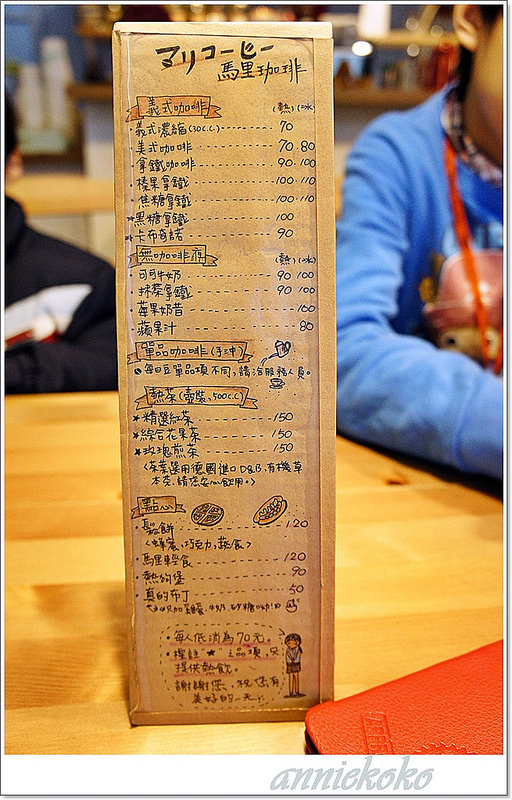 マリコーヒー
馬里珈琲
義式咖啡 (熱) (冰)
・義式濃縮(30C.C.) 70
・美式咖啡 70・80
・拿鐵咖啡 90・100
・榛果拿鐵 100・110
・焦糖拿鐵 100・110
★黑糖拿鐵 100
★卡布奇諾 90
無咖啡因 (熱) (冰)
・可可牛奶 90 100
・抹茶拿鐵 90 100
・莓果奶昔 100
・蘋果汁 80
單品咖啡(手沖)
每日豆單品項不同,請洽服務人員。
熱茶(壺裝,500C.C)
★精選紅茶 150
★綜合花果茶 150
★玫瑰煎茶 150
<茶葉選用德國進口D&B.有機草
本茶.請您安心飲用。>
點心
・鬆餅 120
<蜂蜜、巧克力、蔬食>
・馬里輕食 120
・熱狗堡 90
・真的布丁 50
只加雞蛋、牛奶、砂糖
・每人低消為70元。
・標註"★"之品項,只
提供熱飲。
謝謝您、祝您有
美好的一天
anniekoko